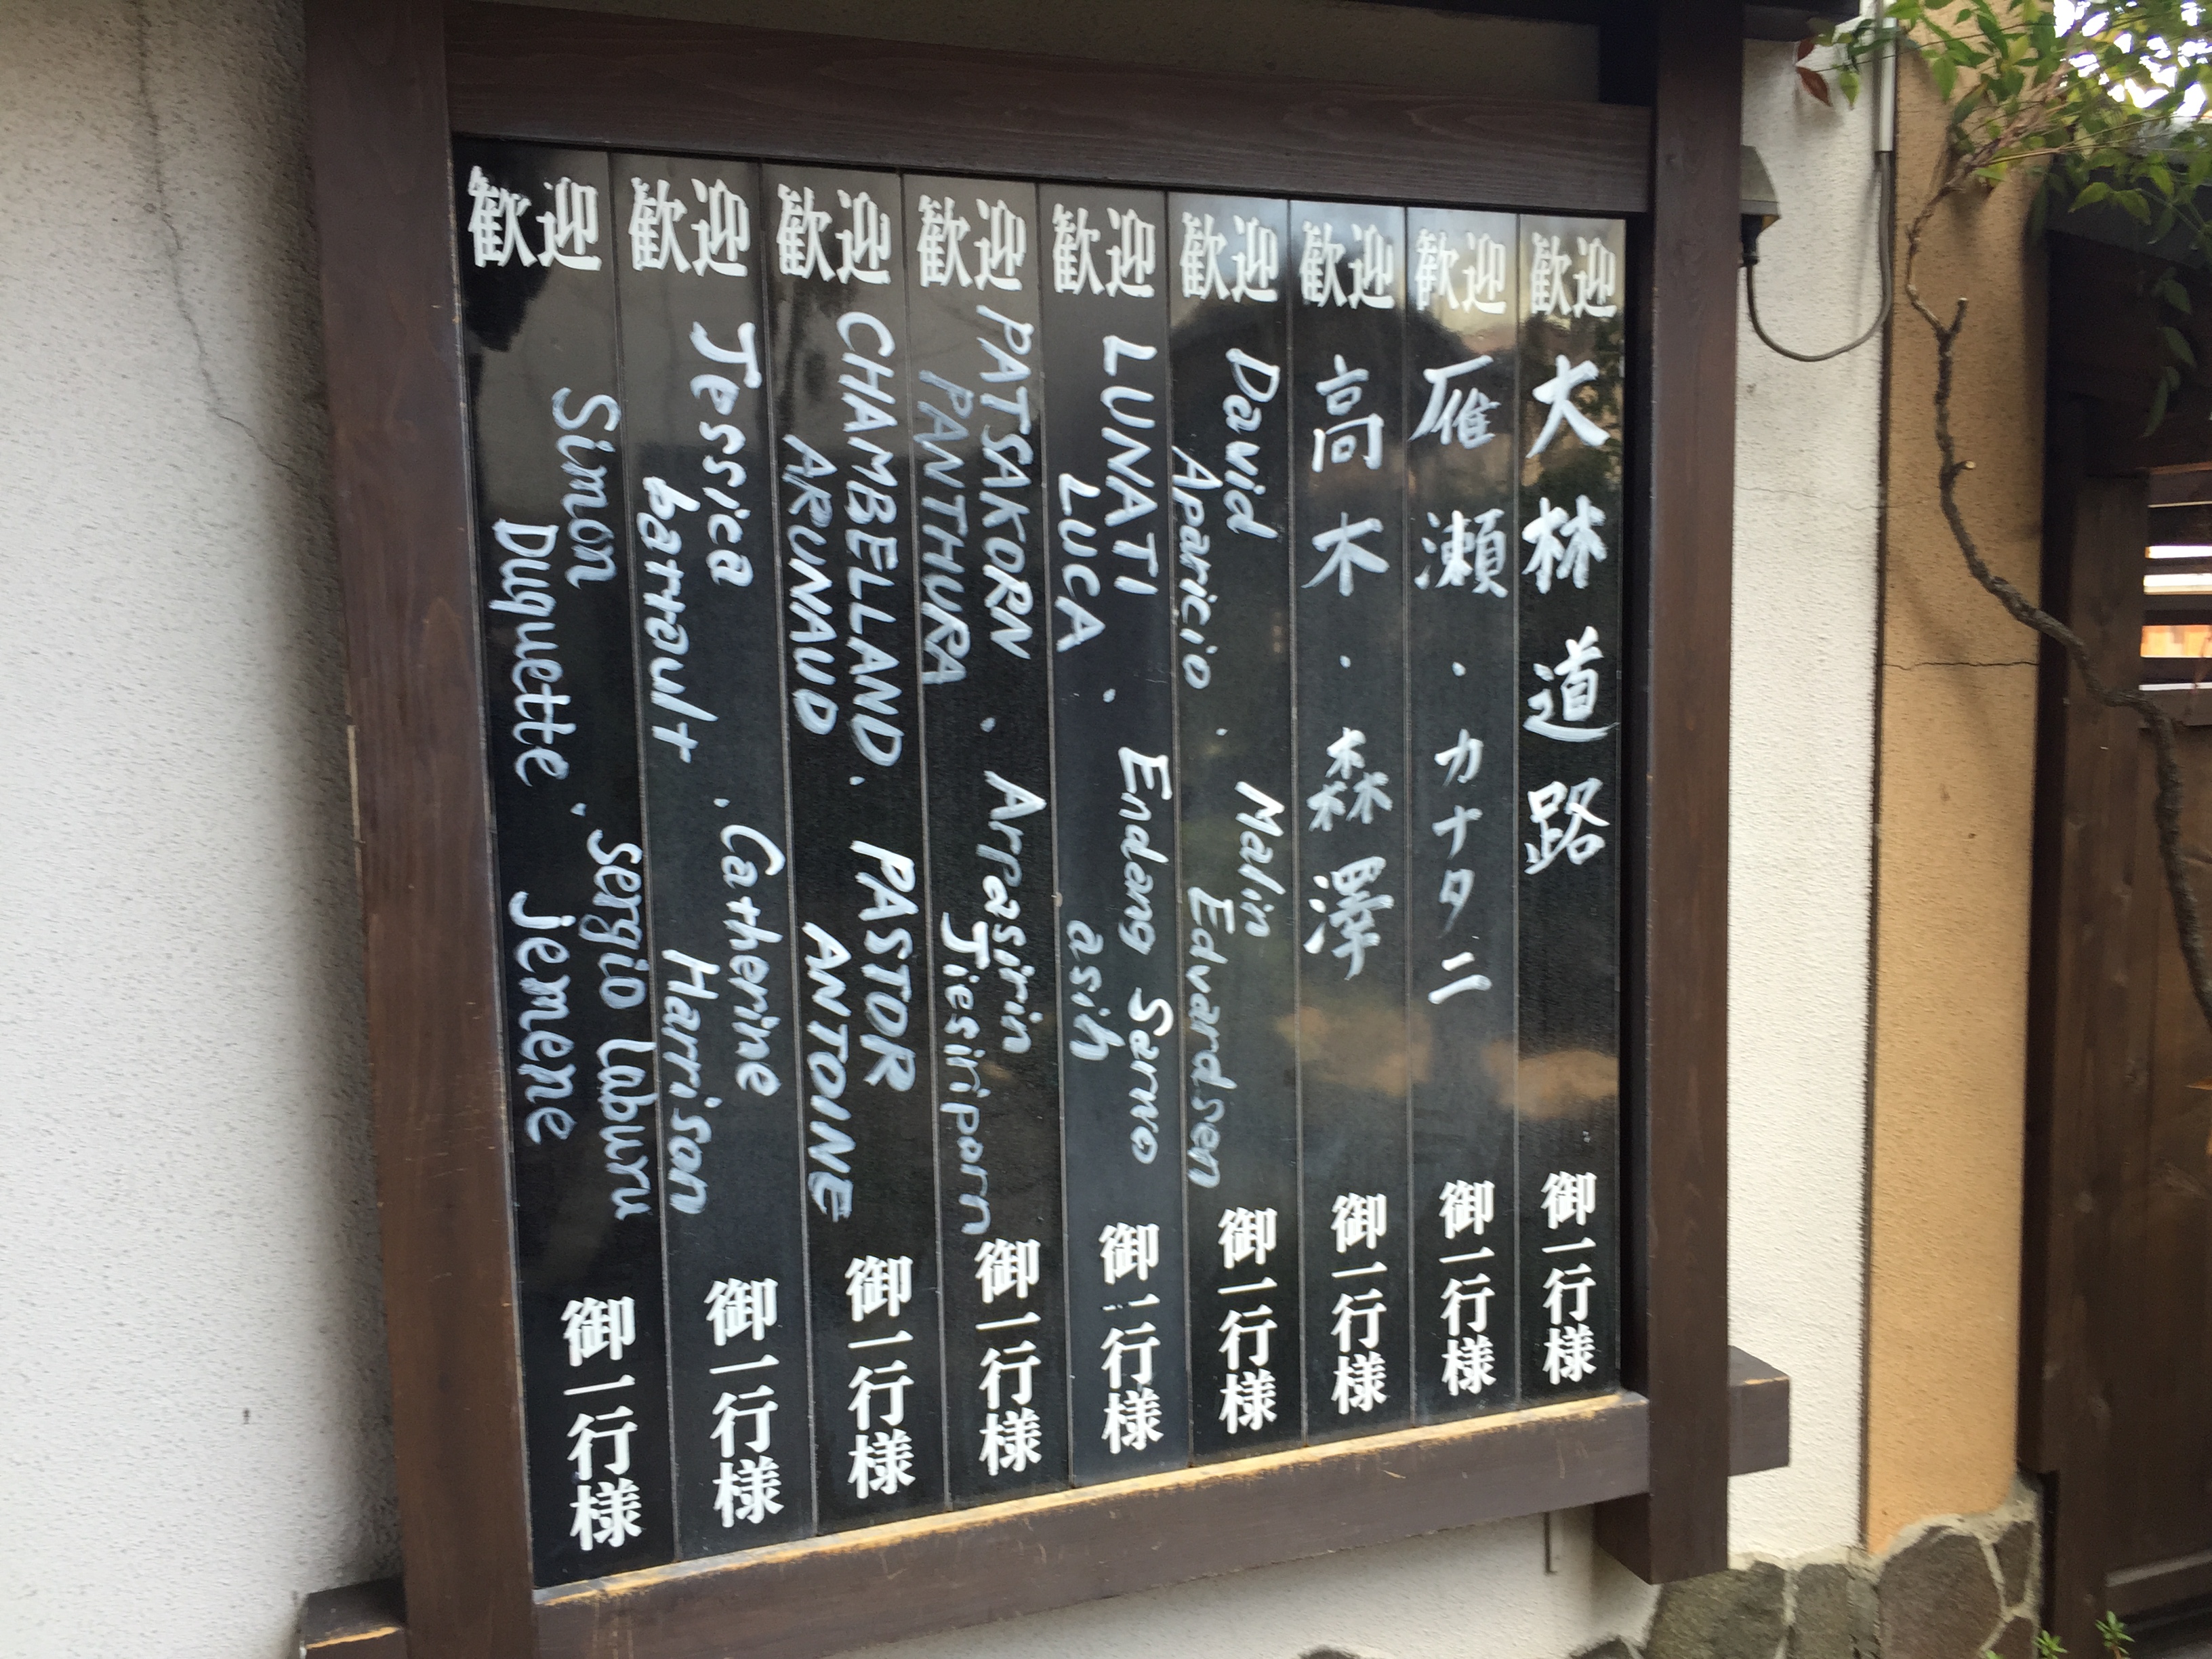 歓迎 大林道路 御一行様
歓迎 雁瀬・カナタニ 御一行様
歓迎 高木・森澤 御一行様
歓迎 David Aparicio・Malin Edvardsen 御一行様
歓迎 LUNATI LUCA・Endang Sarwo asih 御一行様
歓迎 PATSAKORN PANTHURA・Arrasirin Jiesiriporn 御一行様
歓迎 CHAMBELLAND ARUNAUD・PASTOR ANTOINE 御一行様
歓迎 Jessica barrault・Catherine Harrison 御一行様
歓迎 Simon Duquette・Sergio Luburu Jemene 御一行様